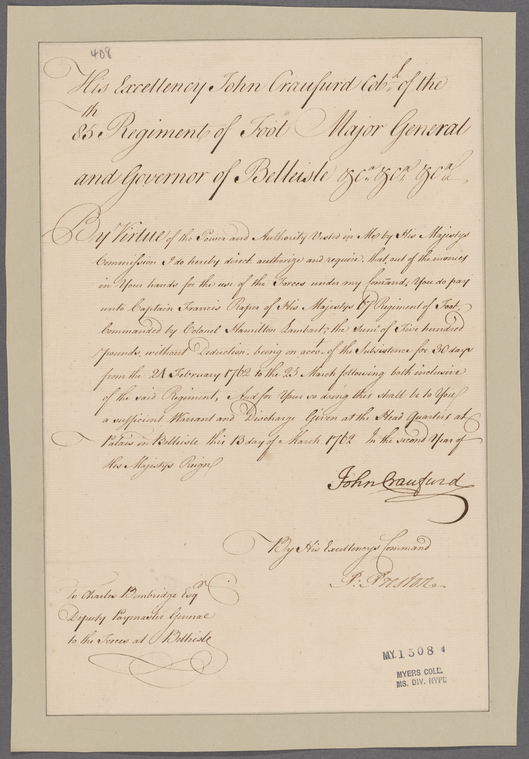 408
His Excellency John Craufurd Col.l of the
85th Regiment of Foot Major General
and Governor of Belleisle &c.a &c.a &c.a
By Virtue of the Power and Authority Vested in Me by His Majestys
Commission I do hereby direct, authorize and require, that, out of the monies
in Your hands for the use of the Forces under my Comand, You do pay
unto Captain Francis Raper of His Majestys 67 Regiment of Foot,
Commanded by Colonel Hamilton Lambart; the Sum of Five hundred
pounds, without Deduction, being on acco.t of the Subsistence for 30 days
from the 24 February 1762 to the 25 March following both inclusive
of the said Regiment, And for Your so doing this shall be to You
a sufficient Warrant and Discharge Given at the Head Quarters at
Palais in Belleisle this 13 day of March 1762 In the second Year of
His Majestys Reign
John Craufurd
By His Excellencys Command
P: Preston
To Charles Bembridge Esq.r
Deputy Paymaster General
to the Forces at Belleisle
MY 1508 4
MYERS COLL.
MS. DIV. NYPL